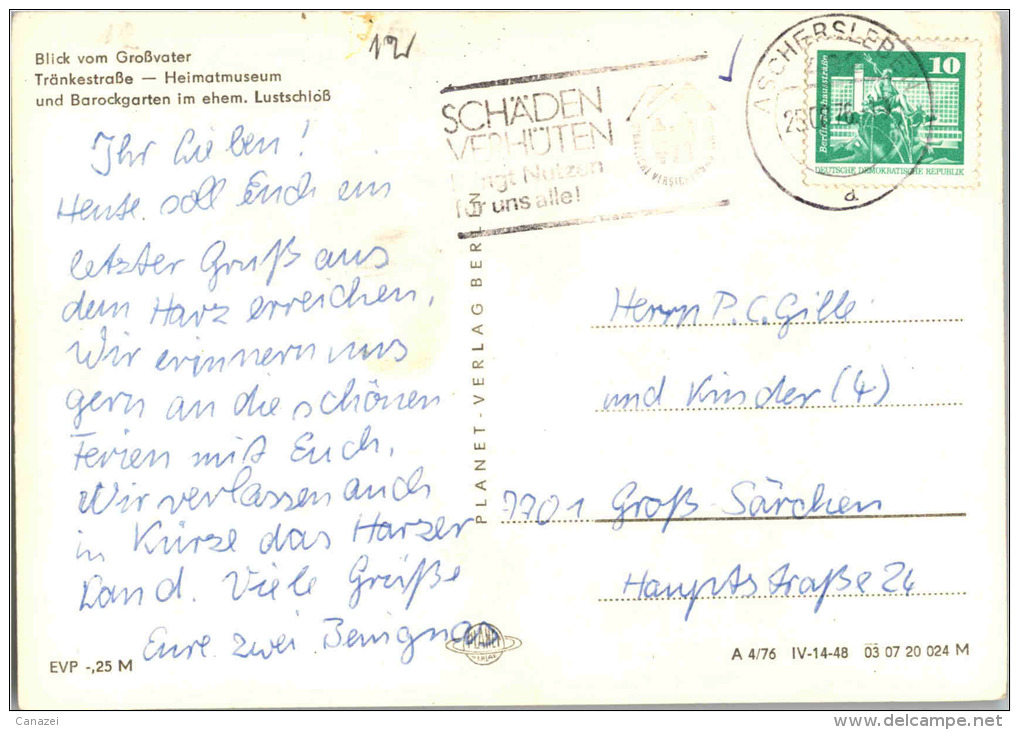 Blick vom Großvater
Tränkestraße — Heimatmuseum
und Barockgarten im ehem. Lustschloß
12
SCHÄDEN
VERHÜTEN
bringt Nutzen
für uns alle!
ASCHERSLEBEN
a
10
Berlin
DEUTSCHE DEMOKRATISCHE REPUBLIK
Ihr Lieben!
Heute soll Euch ein
letzter Gruß aus
dem Harz erreichen.
Wir erinnern uns
gern an die schönen
Ferien mit Euch.
Wir verlassen auch
in Kürze das Harzer
Land. Viele Grüße
Eure zwei
PLANET-VERLAG BERLIN
Herrn P. C. Gille
und Kinder (4)
7701 Groß-Särchen
Hauptstraße 24
PLANET
VERLAG
EVP -,25 M
A 4/76 IV-14-48 03 07 20 024 M
Canazei
www.delcampe.net